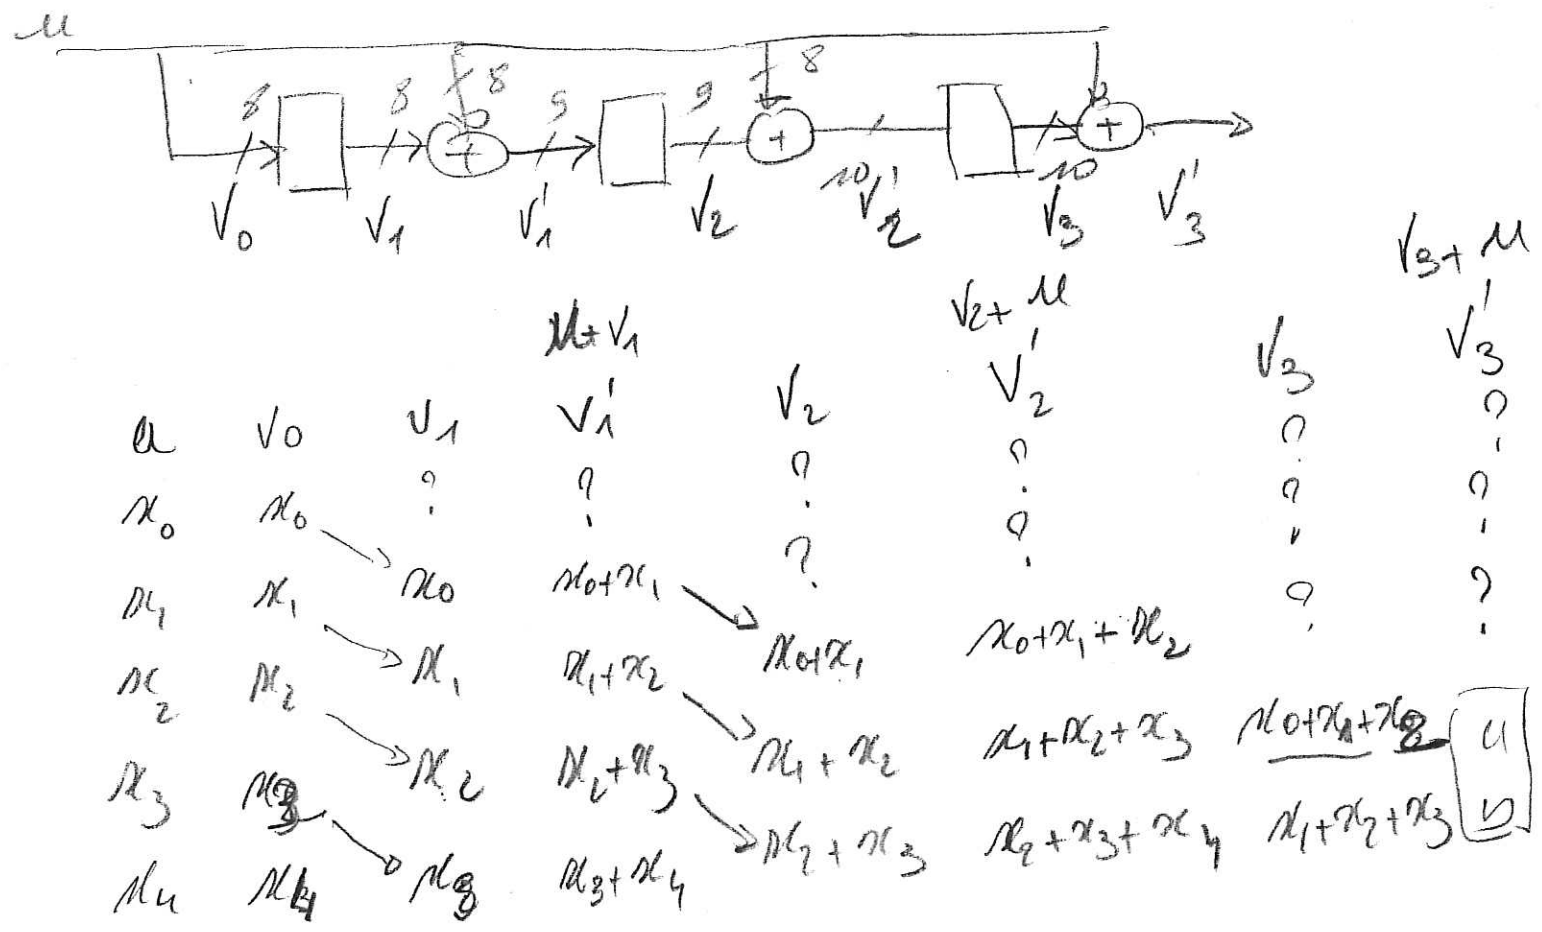 u
8 8 8 9 9 8
+ + +
10 10
V0 V1 V1' V2 V2' V3 V3'
u+V1 V2+u V3+u
u V0 V1 V1' V2 V2' V3 V3'
x0 x0 ? ? ? ? ? ?
x1 x1 x0 x0+x1 ? ? ? ?
x2 x2 x1 x1+x2 x0+x1 x0+x1+x2 ? ?
x3 x3 x2 x2+x3 x1+x2 x1+x2+x3 x0+x1+x2
x4 x4 x3 x3+x4 x2+x3 x2+x3+x4 x1+x2+x3